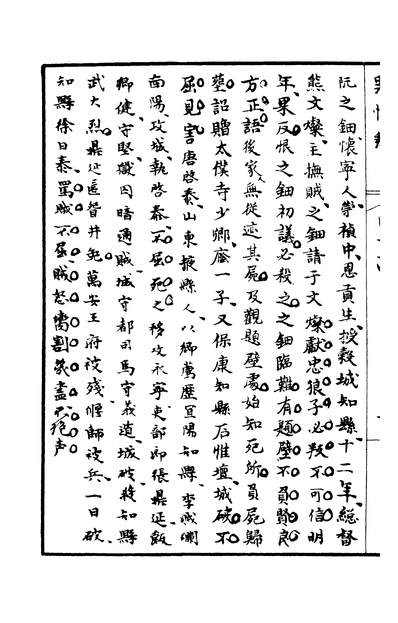 阮之鈿懷寧人崇禎中恩貢生授穀城知縣十二年總督
熊文燦主撫賊之鈿請于文燦獻忠狼子必叛不可信明
年果反恨之鈿初議必殺之之鈿臨難有題壁不負賢良
方正語後家無從迹其屍及觀題壁處始知死所負屍歸
塟詔贈太僕寺少卿廕一子又保康知縣石惟壇城破不
屈見害唐啓泰山東掖縣人以鄉薦歷宜陽知縣李賊闖
南陽攻城執啓泰不屈死之移攻永寧吏部郎張鼎延飯
卿健守堅獄囚暗通賊城守都司馬守義遁城破殺知縣
武大烈鼎延匿眢井免萬安王府被殘偃師被兵一日破
知縣徐日泰罵賊不屈賊怒臠割幾盡不絕声